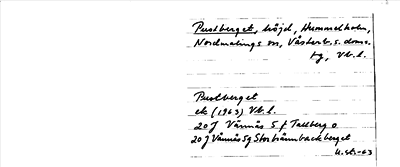 Pustberget, höjd, Hummelholm,
Nordmalings sn, Västerb. s. doms.
tg, Vb. l.
Pustberget
ek (1963) Vb. l.
20 J Vännäs 5 f Tallberg o
20 J Vännäs 5 g Storbrännbackberget
U. st. -63